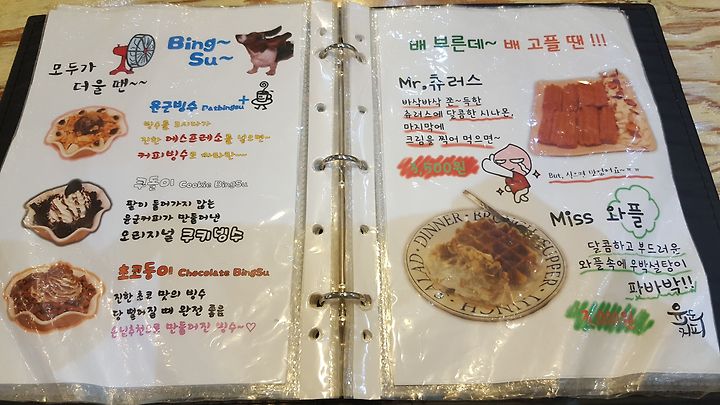 모두가
더울 땐~~
Bing~
Su~
윤군빙수 Patbingsu +
빙수를 드시다가
진한 에스프레소를 넣으면~
커피빙수로 짜라란~~
쿠돌이 Cookie BingSu
팥이 들어가지 않는
윤군커피가 만들어낸
오리지널 쿠키빙수
초코돌이 Chocolate BingSu
진한 초코 맛의 빙수
당 떨어질 때 완전 좋음
손님추천으로 만들어진 빙수~♡
배 부른데~ 배 고플 땐 !!!
Mr.츄러스
바삭바삭 쫀~득한
츄러스에 달콤한 시나몬,
마지막에
크림을 찍어 먹으면~
5,500원
But, 식으면 맛없어요~ㅠㅠ
DINNER · BRUNCH · SUPPER · LUNCH · SALAD
Miss 와플
달콤하고 부드러운
와플속에 우박설탕이
파바박!!